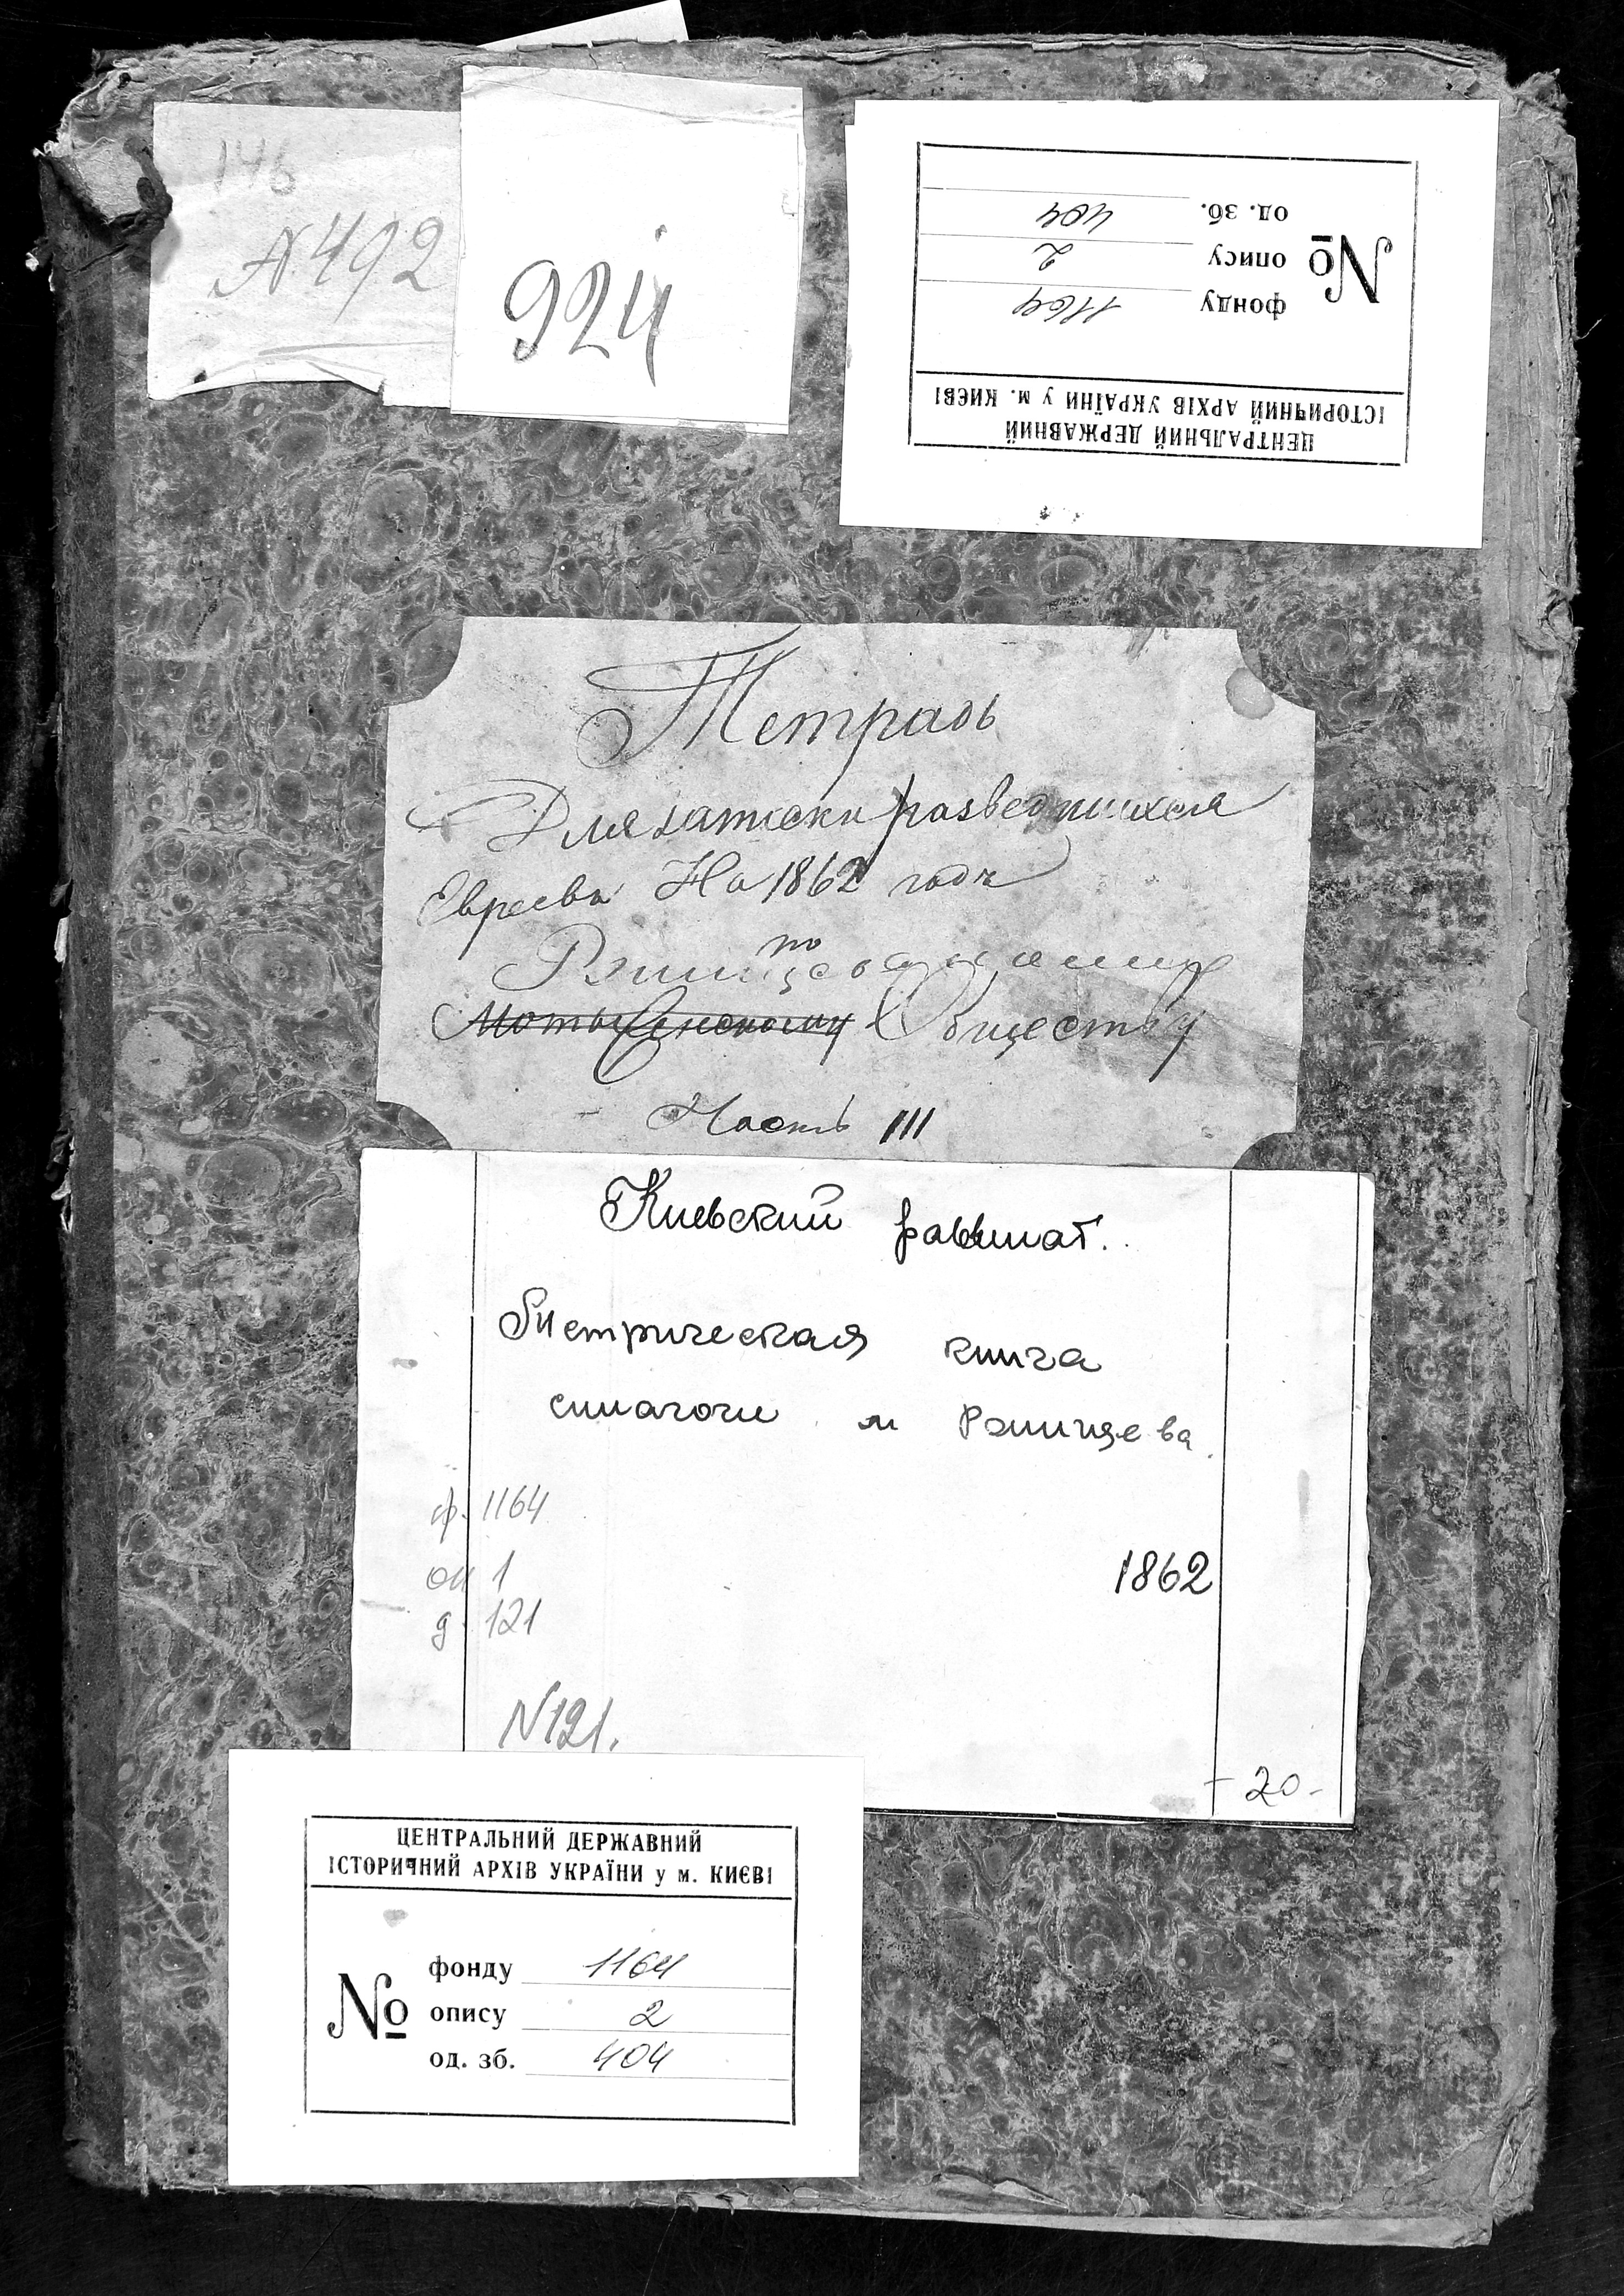 146
№ 492
924
ЦЕНТРАЛЬНИЙ ДЕРЖАВНИЙ
ІСТОРИЧНИЙ АРХІВ УКРАЇНИ у м. КИЄВІ
№
фонду 1164
опису 2
од. зб. 404
Тетрадь
Для записки разведшихся
Евреевъ На 1862 годъ
по
Ржищевскому
Обществу
Часть III
Киевский раввинат.
Метрическая книга
синагоги м Ржищева
ф. 1164
оп 1
1862
д. 121
N 121.
- 20 -
ЦЕНТРАЛЬНИЙ ДЕРЖАВНИЙ
ІСТОРИЧНИЙ АРХІВ УКРАЇНИ у м. КИЄВІ
№
фонду 1164
опису 2
од. зб. 404